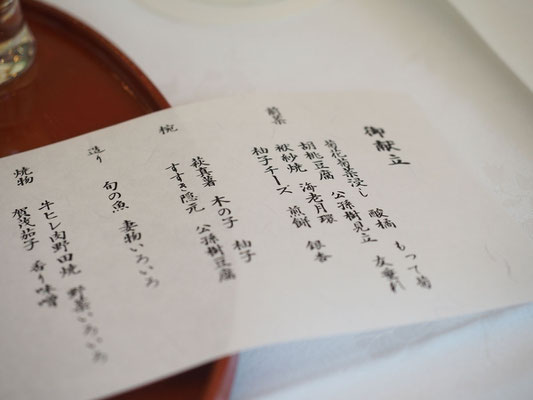 御献立
前菜
菊花菊菜浸し 酸橘 もって菊
胡桃豆腐 公孫樹見立 友重れ
袱紗焼 海老月環 銀杏
柚子チーズ 煎餅
椀
萩真薯 木の子 柚子
すすき隠元 公孫樹豆腐
造り
旬の魚 妻物いろいろ
焼物
牛ヒレ肉野田焼 野菜いろいろ
賀茂茄子 香り味噌